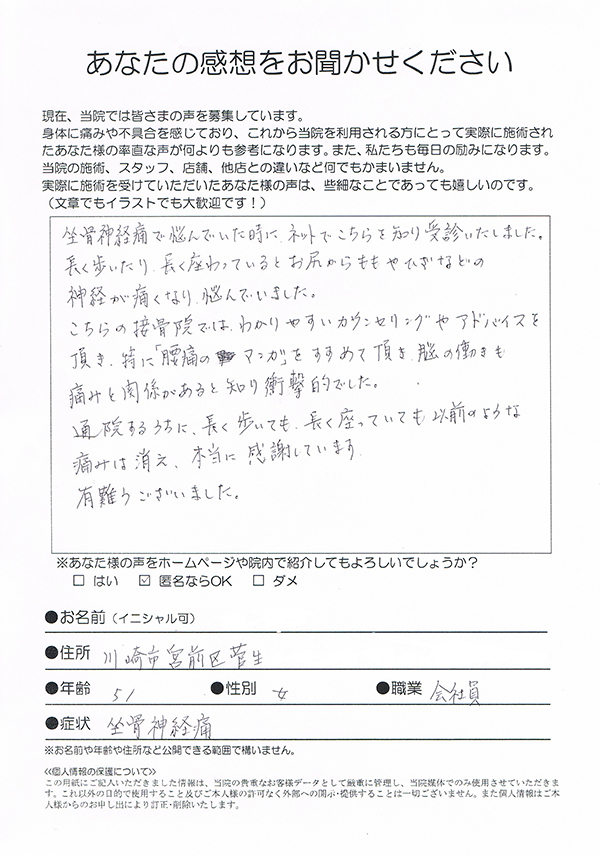 あなたの感想をお聞かせください
現在、当院では皆さまの声を募集しています。
身体に痛みや不具合を感じており、これから当院を利用される方にとって実際に施術され
たあなた様の率直な声が何よりも参考になります。また、私たちも毎日の励みになります。
当院の施術、スタッフ、店舗、他店との違いなど何でもかまいません。
実際に施術を受けていただいたあなた様の声は、些細なことであっても嬉しいのです。
（文章でもイラストでも大歓迎です！）
坐骨神経痛で悩んでいた時に、ネットでこちらを知り受診いたしました。
長く歩いたり、長く座わっているとお尻からももやひざなどの
神経が痛くなり、悩んでいました。
こちらの接骨院では、わかりやすいカウンセリングやアドバイスを
頂き、特に「腰痛の マンガ」をすすめて頂き、脳の働きも
痛みと関係があると知り衝撃的でした。
通院するうちに、長く歩いても、長く座っていても以前のような
痛みは消え、本当に感謝しています。
有難うございました。
※あなた様の声をホームページや院内で紹介してもよろしいでしょうか？
□ はい ☑ 匿名ならOK □ ダメ
●お名前（イニシャル可）
●住所 川崎市宮前区菅生
●年齢 51 ●性別 女 ●職業 会社員
●症状 坐骨神経痛
※お名前や年齢や住所など公開できる範囲で構いません。
≪個人情報の保護について≫
この用紙にご記入いただきました情報は、当院の貴重なお客様データとして厳重に管理し、当院媒体でのみ使用させていただきま
す。これ以外の目的で使用すること及びご本人様の許可なく外部への開示・提供することは一切ございません。また個人情報はご本
人様からのお申し出により訂正・削除いたします。